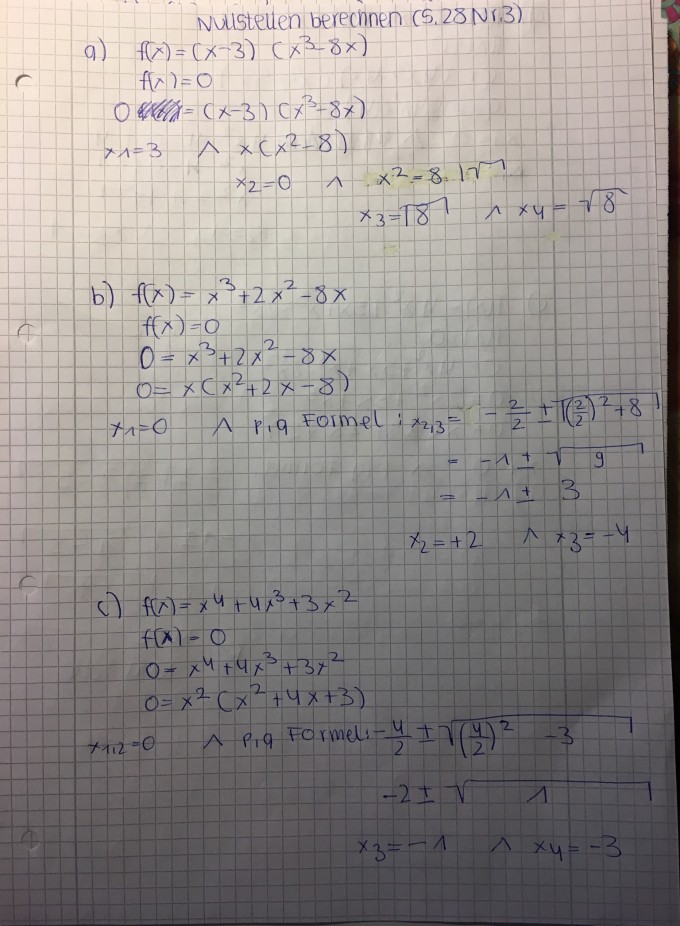 Nullstellen berechnen (S. 28 Nr. 3)
a) f(x) = (x-3) (x³-8x)
f(x) = 0
0 = (x-3) (x³-8x)
x1=3 ∧ x(x²-8)
x2=0 ∧ x²=8 |√
x3=√8 ∧ x4=√8
b) f(x) = x³+2x²-8x
f(x)=0
0 = x³+2x²-8x
0= x(x²+2x-8)
x1=0 ∧ p,q Formel: x2,3= -2/2 ± √((2/2)²+8)
= -1 ± √9
= -1 ± 3
x2=+2 ∧ x3=-4
c) f(x)= x4+4x³+3x²
f(x) = 0
0= x4+4x³+3x²
0= x²(x²+4x+3)
x1,2=0 ∧ p,q Formel: -4/2 ± √((4/2)² -3)
-2 ± √1
x3=-1 ∧ x4=-3